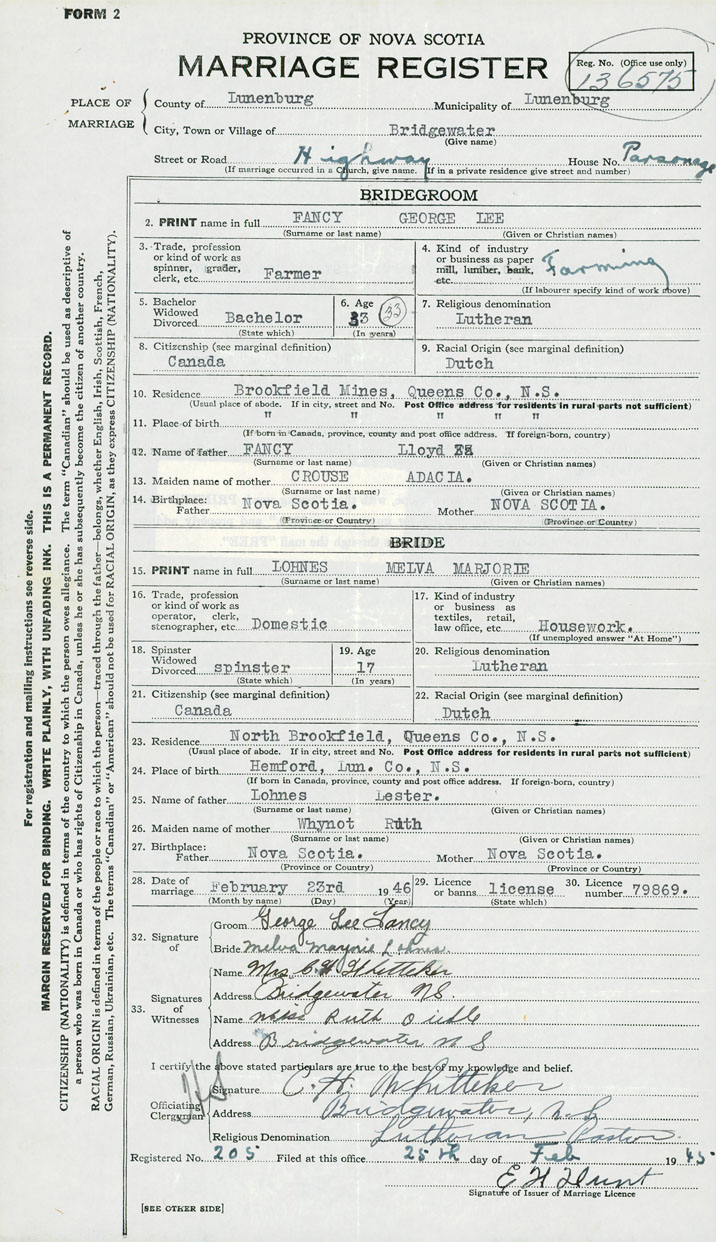 FORM 2
PROVINCE OF NOVA SCOTIA
MARRIAGE REGISTER
Reg. No. (Office use only)
136575
PLACE OF MARRIAGE
County of Lunenburg Municipality of Lunenburg
City, Town or Village of Bridgewater
(Give name)
Street or Road Highway House No. Parsonage
(If marriage occurred in a Church, give name. If in a private residence give street and number)
BRIDEGROOM
2. PRINT name in full FANCY GEORGE LEE
(Surname or last name) (Given or Christian names)
3. Trade, profession
or kind of work as
spinner, grader,
clerk, etc. Farmer
4. Kind of industry
or business as paper
mill, lumber, bank,
etc. Farming
(If labourer specify kind of work above)
5. Bachelor
Widowed
Divorced Bachelor
(State which)
6. Age
33 (33)
(In years)
7. Religious denomination
Lutheran
8. Citizenship (see marginal definition)
Canada
9. Racial Origin (see marginal definition)
Dutch
10. Residence Brookfield Mines, Queens Co., N.S.
(Usual place of abode. If in city, street and No. Post Office address for residents in rural parts not sufficient)
11. Place of birth " " " " "
(If born in Canada, province, county and post office address. If foreign-born, country)
12. Name of father FANCY Lloyd
(Surname or last name) (Given or Christian names)
13. Maiden name of mother CROUSE ADACIA.
(Surname or last name) (Given or Christian names)
14. Birthplace:
Father Nova Scotia. Mother NOVA SCOTIA.
(Province or Country) (Province or Country)
BRIDE
15. PRINT name in full LOHNES MELVA MARJORIE
(Surname or last name) (Given or Christian names)
16. Trade, profession
or kind of work as
operator, clerk,
stenographer, etc. Domestic
17. Kind of industry
or business as
textiles, retail,
law office, etc. Housework.
(If unemployed answer "At Home")
18. Spinster
Widowed
Divorced spinster
(State which)
19. Age
17
(In years)
20. Religious denomination
Lutheran
21. Citizenship (see marginal definition)
Canada
22. Racial Origin (see marginal definition)
Dutch
23. Residence North Brookfield, Queens Co., N.S.
(Usual place of abode. If in city, street and No. Post Office address for residents in rural parts not sufficient)
24. Place of birth Hemford, Lun. Co., N.S.
(If born in Canada, province, county and post office address. If foreign-born, country)
25. Name of father Lohnes Lester.
(Surname or last name) (Given or Christian names)
26. Maiden name of mother Whynot Ruth
(Surname or last name) (Given or Christian names)
27. Birthplace:
Father Nova Scotia. Mother Nova Scotia.
(Province or Country) (Province or Country)
28. Date of marriage February 23rd 1946
(Month by name) (Day) (Year)
29. Licence or banns license
(State which)
30. Licence number 79869.
32. Signature of
Groom George Lee Fancy
Bride Melva Marjorie Lohnes
33. Signatures of Witnesses
Name Mrs C H Whitteker
Address Bridgewater NS.
Name Miss Ruth
Address Bridgewater N S
I certify the above stated particulars are true to the best of my knowledge and belief.
Officiating Clergyman
Signature C. H. Whitteker
Address Bridgewater, N.S.
Religious Denomination Lutheran Pastor
Registered No. 205 Filed at this office 25th day of Feb 1945
E H Hunt
Signature of Issuer of Marriage Licence
[SEE OTHER SIDE]
For registration and mailing instructions see reverse side.
MARGIN RESERVED FOR BINDING. WRITE PLAINLY, WITH UNFADING INK. THIS IS A PERMANENT RECORD.
CITIZENSHIP (NATIONALITY) is defined in terms of the country to which the person owes allegiance. The term "Canadian" should be used as descriptive of
a person who was born in Canada or who has rights of Citizenship in Canada, unless he or she has subsequently become the citizen of another country.
RACIAL ORIGIN is defined in terms of the people or race to which the person—traced through the father—belongs, whether English, Irish, Scottish, French,
German, Russian, Ukrainian, etc. The terms "Canadian" or "American" should not be used for RACIAL ORIGIN, as they express CITIZENSHIP (NATIONALITY).